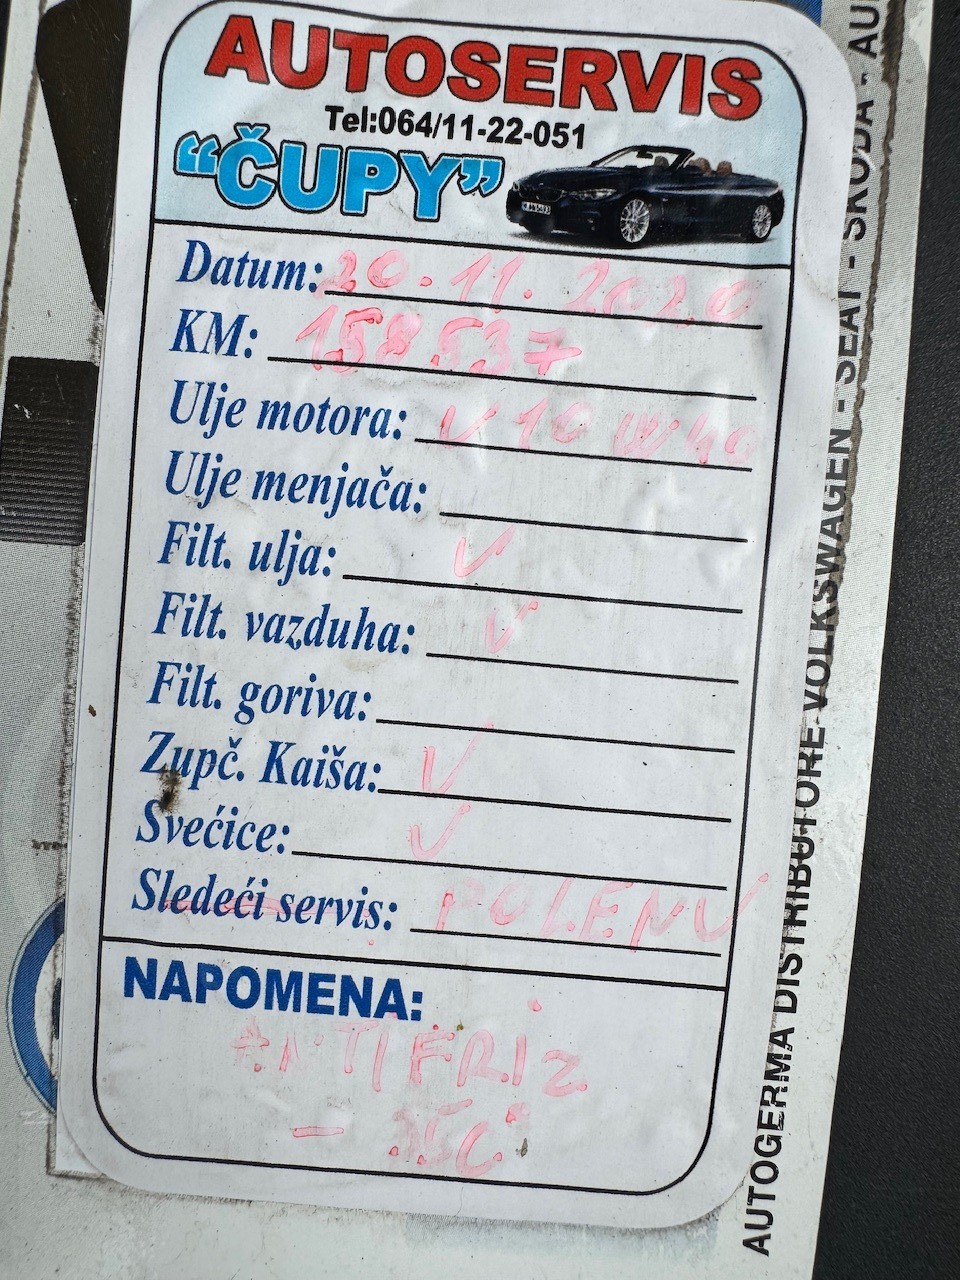 AUTOSERVIS
Tel:064/11-22-051
“ČUPY”
Datum: 20.11.2020
KM: 158.537
Ulje motora: ✓ 10W40
Ulje menjača:
Filt. ulja: ✓
Filt. vazduha: ✓
Filt. goriva:
Zupč. Kaiša: ✓
Svećice: ✓
Sledeći servis: POLENU
NAPOMENA:
ANTIFRIZ
- 35C°
AUTOGERMA DISTRIBUTORE VOLKSWAGEN - SEAT - SKODA - AU